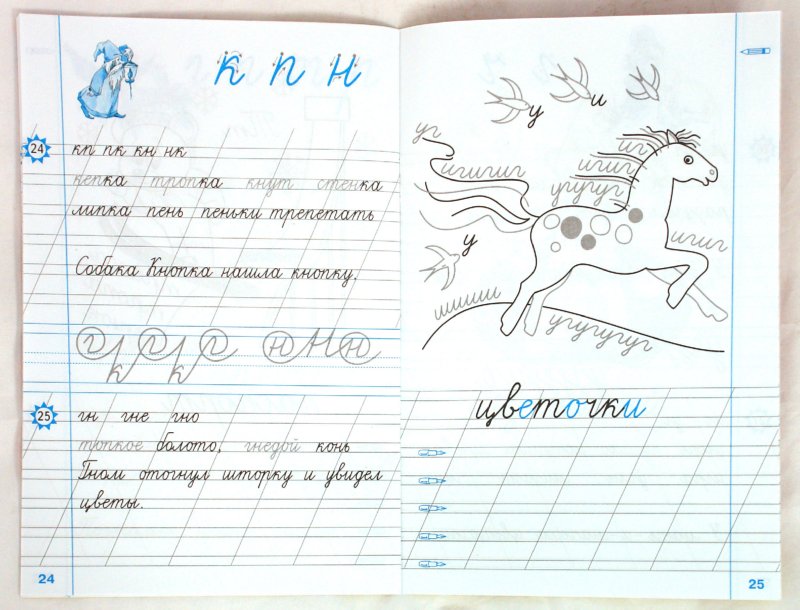 к п н
24
кп пк кн нк
кепка тропка кнут стенка
липка пень пеньки трепетать
Собака Кнопка нашла кнопку.
г к г к г н н н
25
гн гне гно
топкое болото, гнедой конь
Гном отогнул шторку и увидел
цветы.
24
у и
уг
игигиг
иг
игиг
угугуг
у
игиг
шшшш
угугугуг
цветочки
25